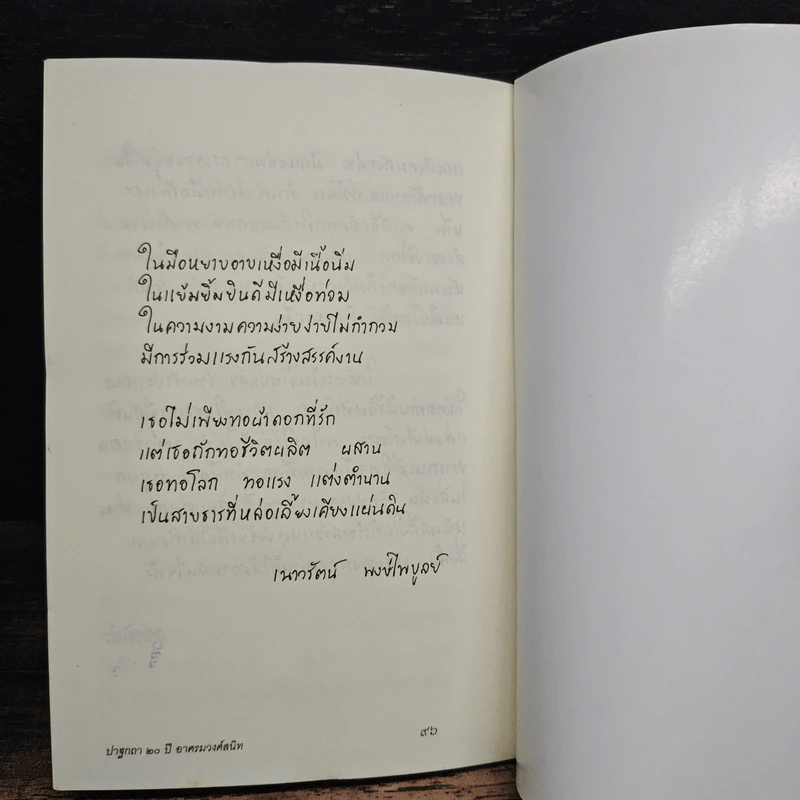 ในมือหยาบอาบเหงื่อมีเนื้อนิ่ม
ในแย้มยิ้มยินดีมีเหงื่อท่วม
ในความงามความง่ายง่ายไม่กำกวม
มีการร่วมแรงกันสร้างสรรค์งาน
เธอไม่เพียงทอผ้าดอกที่รัก
แต่เธอถักทอชีวิตผลิต ผสาน
เธอทอโลก ทอแรง แต่งตำนาน
เป็นสายธารที่หล่อเลี้ยงเคียงแผ่นดิน
เนาวรัตน์ พงษ์ไพบูลย์
๙๖
ปาฐกถา ๒๐ ปี อาศรมวงศ์สนิท